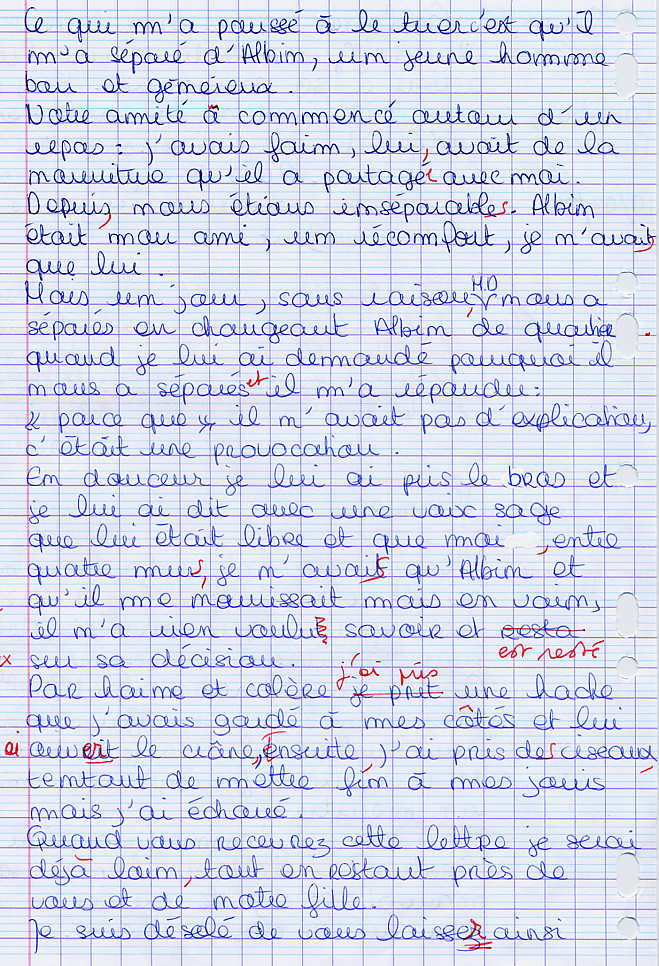 Ce qui m'a poussé à le tuer c'est qu'il
m'a séparé d'Albin, un jeune homme
bon et généreux.
Notre amitié a commencé autour d'un
repas : j'avais faim, lui, avait de la
nourriture qu'il a partagé avec moi.
Depuis, nous étions inséparables. Albin
était mon ami, un réconfort, je n'avait
que lui.
Mais un jour, sans raison, M.D nous a
séparés en changeant Albin de quartier.
quand je lui ai demandé pourquoi il
nous a séparés et il m'a répondu :
« parce que » il n'avait pas d'explication,
c'était une provocation.
En douceur je lui ai pris le bras et
je lui ai dit avec une voix sage
que lui était libre et que moi, entre
quatre murs, je n'avais qu'Albin et
qu'il me nourrissait mais en vain,
il n'a rien voulu savoir et resta
est resté
x sur sa décision.
j'ai pris
Par haine et colère je prit une hache
que j'avais gardé à mes côtés et lui
ai ouvert le crâne, ensuite, j'ai pris des ciseaux,
temtant de mettre fin à mes jours
mais j'ai échoué.
Quand vous recevrez cette lettre je serai
déjà loin, tout en restant près de
vous et de notre fille.
Je suis désolé de vous laisser ainsi